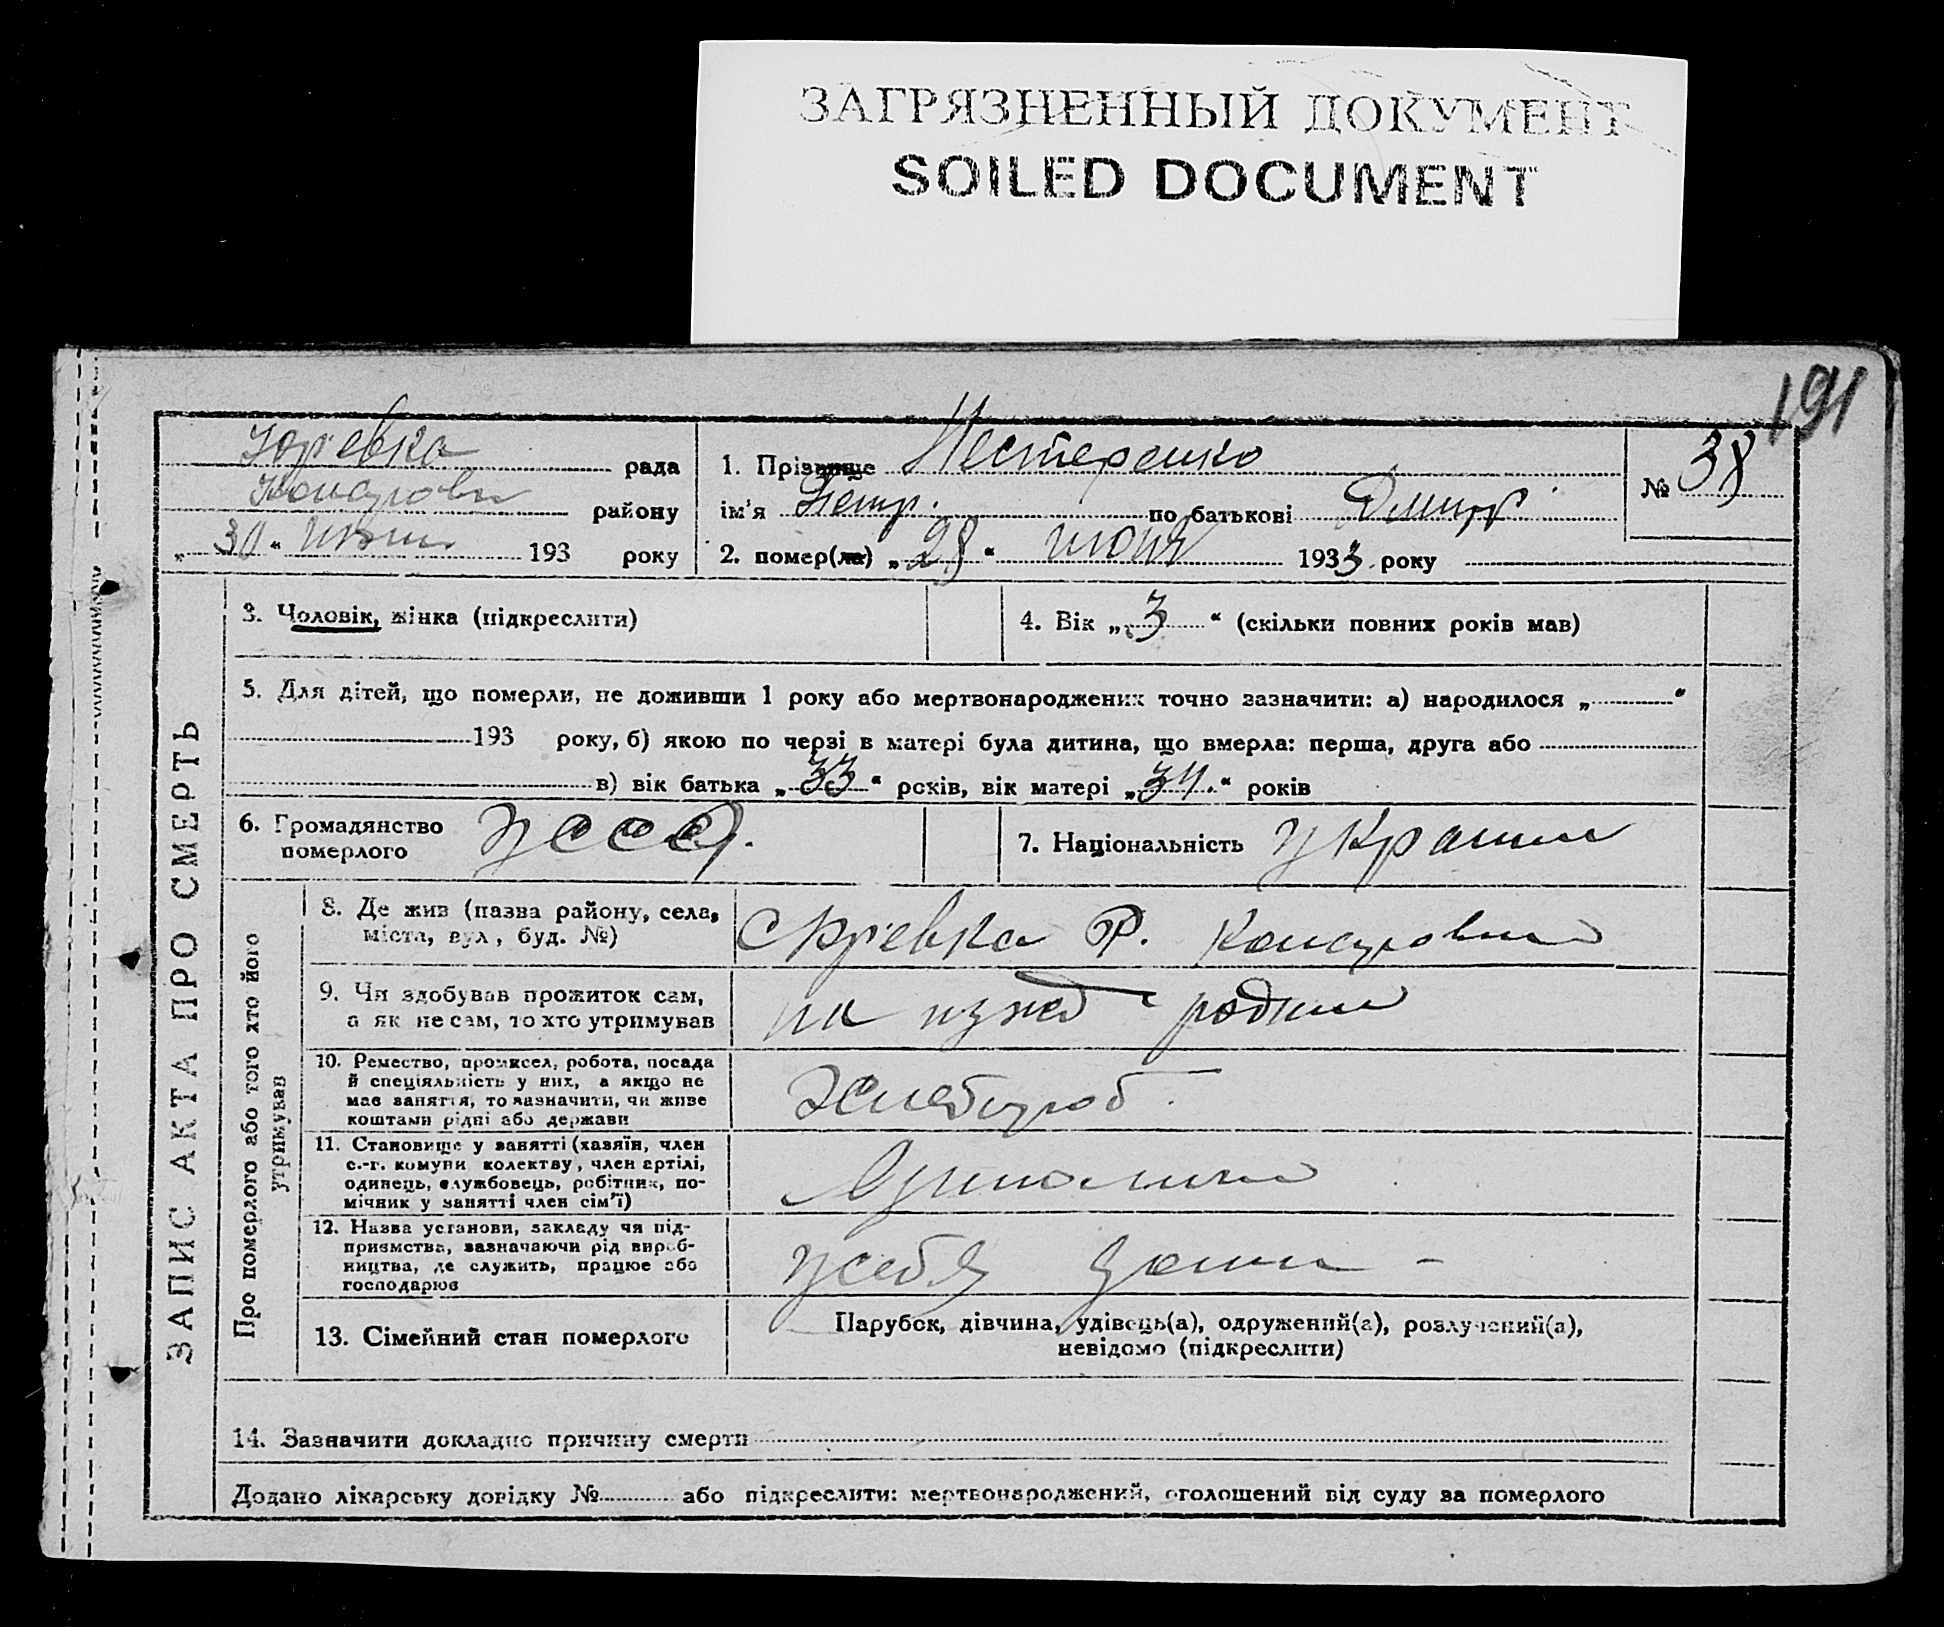 ЗАГРЯЗНЕННЫЙ ДОКУМЕНТ
SOILED DOCUMENT
191
Юр'евка рада
району
„30“ 193 року
1. Прізвище Нестеренко
ім'я Петр. по батькові Дмитр
2. помер(ла) „28“ июня 1933 року
№ 38
ЗАПИС АКТА ПРО СМЕРТЬ
3. Чоловік, жінка (підкреслити)
4. Вік „3“ (скільки повних років мав)
5. Для дітей, що померли, не доживши 1 року або мертвонароджених точно зазначити: а) народилося „ “
193 року, б) якою по черзі в матері була дитина, що вмерла: перша, друга або
в) вік батька „33“ років, вік матері „34.“ років
6. Громадянство
померлого
УССР.
7. Національність украин
Про померлого або того хто його
утримував
8. Де жив (назва району, села,
міста, вул., буд. №)
с Юр'евка Р.
9. Чи здобував прожиток сам,
а як не сам, то хто утримував
на ижд родит
10. Ремество, промисел, робота, посада
й спеціяльність у них, а якщо не
має заняття, то зазначити, чи живе
коштами рідні або держави
Хлебороб
11. Становище у занятті (хазяїн, член
с.-г. комуни колективу, член артілі,
одинець, службовець, робітник, по-
мічник у занятті член сім'ї)
12. Назва установи, закладу чи під-
приємства, зазначаючи рід вироб-
ництва, де служить, працює або
господарює
у себя дома -
13. Сімейний стан померлого
Парубок, дівчина, удівець(а), одружений(а), розлучений(а),
невідомо (підкреслити)
14. Зазначити докладно причину смерти
Додано лікарську довідку № або підкреслити: мертвонароджений, оголошений від суду за померлого